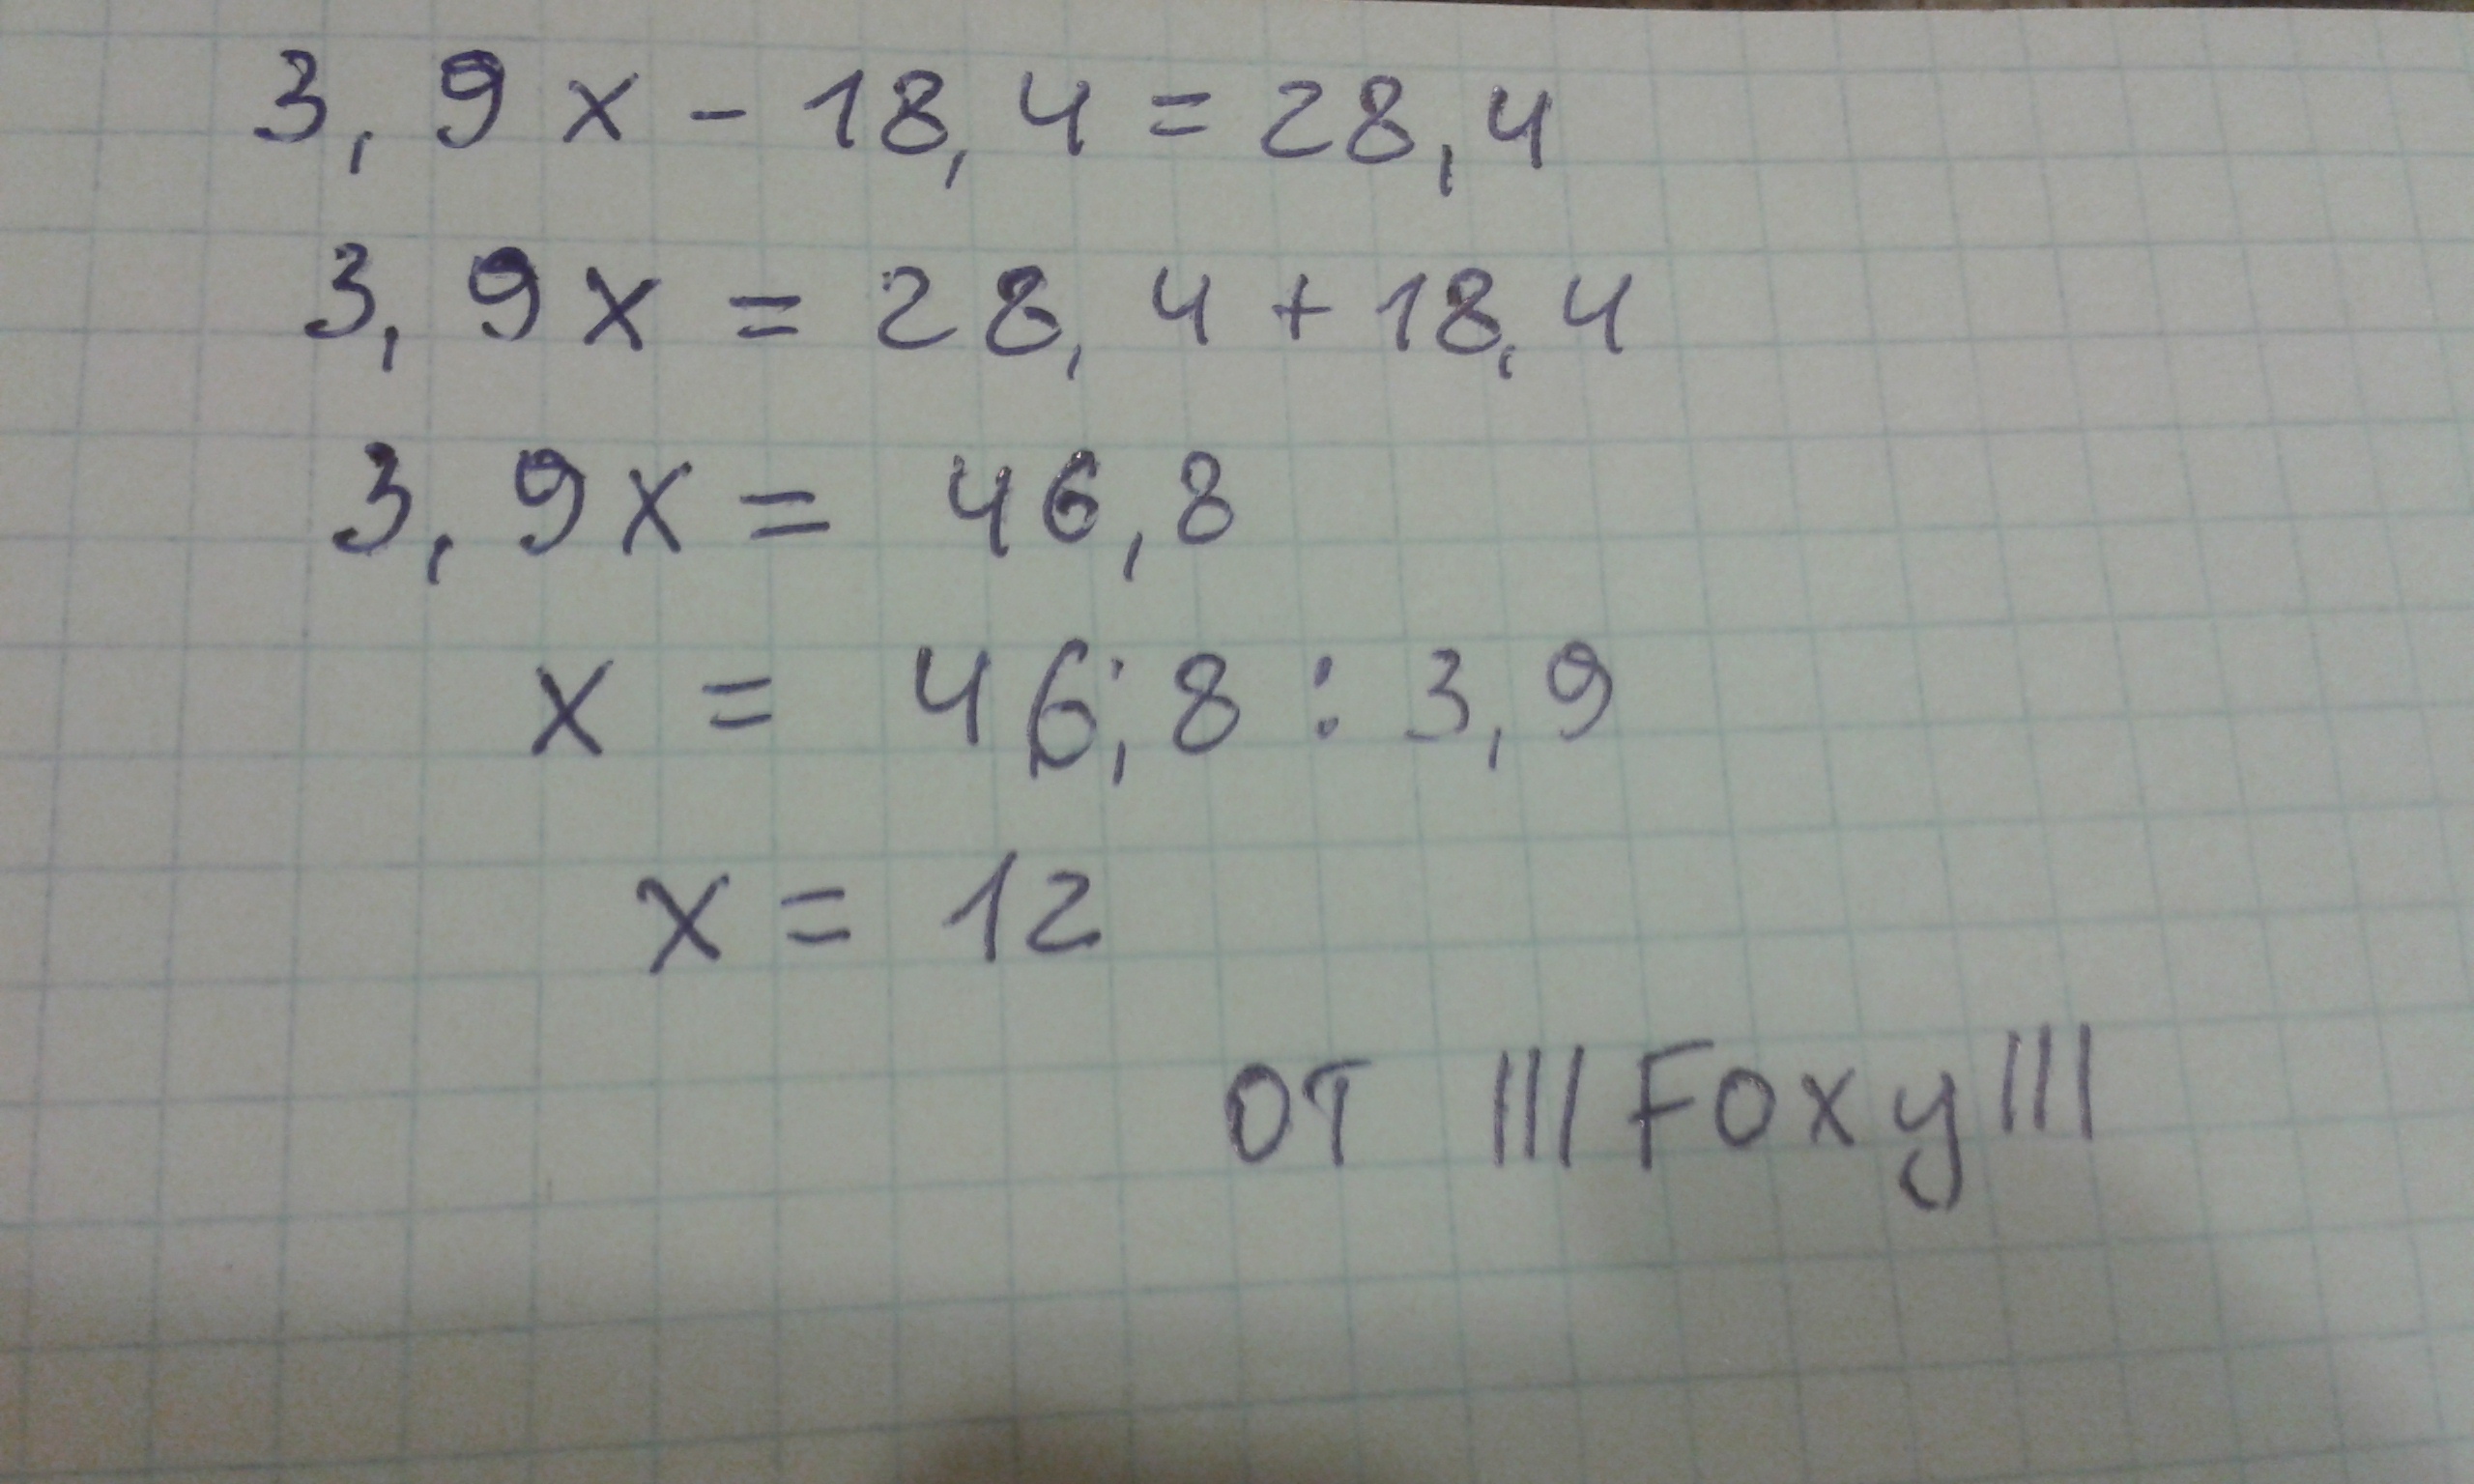 3,9x - 18,4 = 28,4
3,9x = 28,4 + 18,4
3,9x = 46,8
x = 46,8 : 3,9
x = 12
от |||Foxy|||